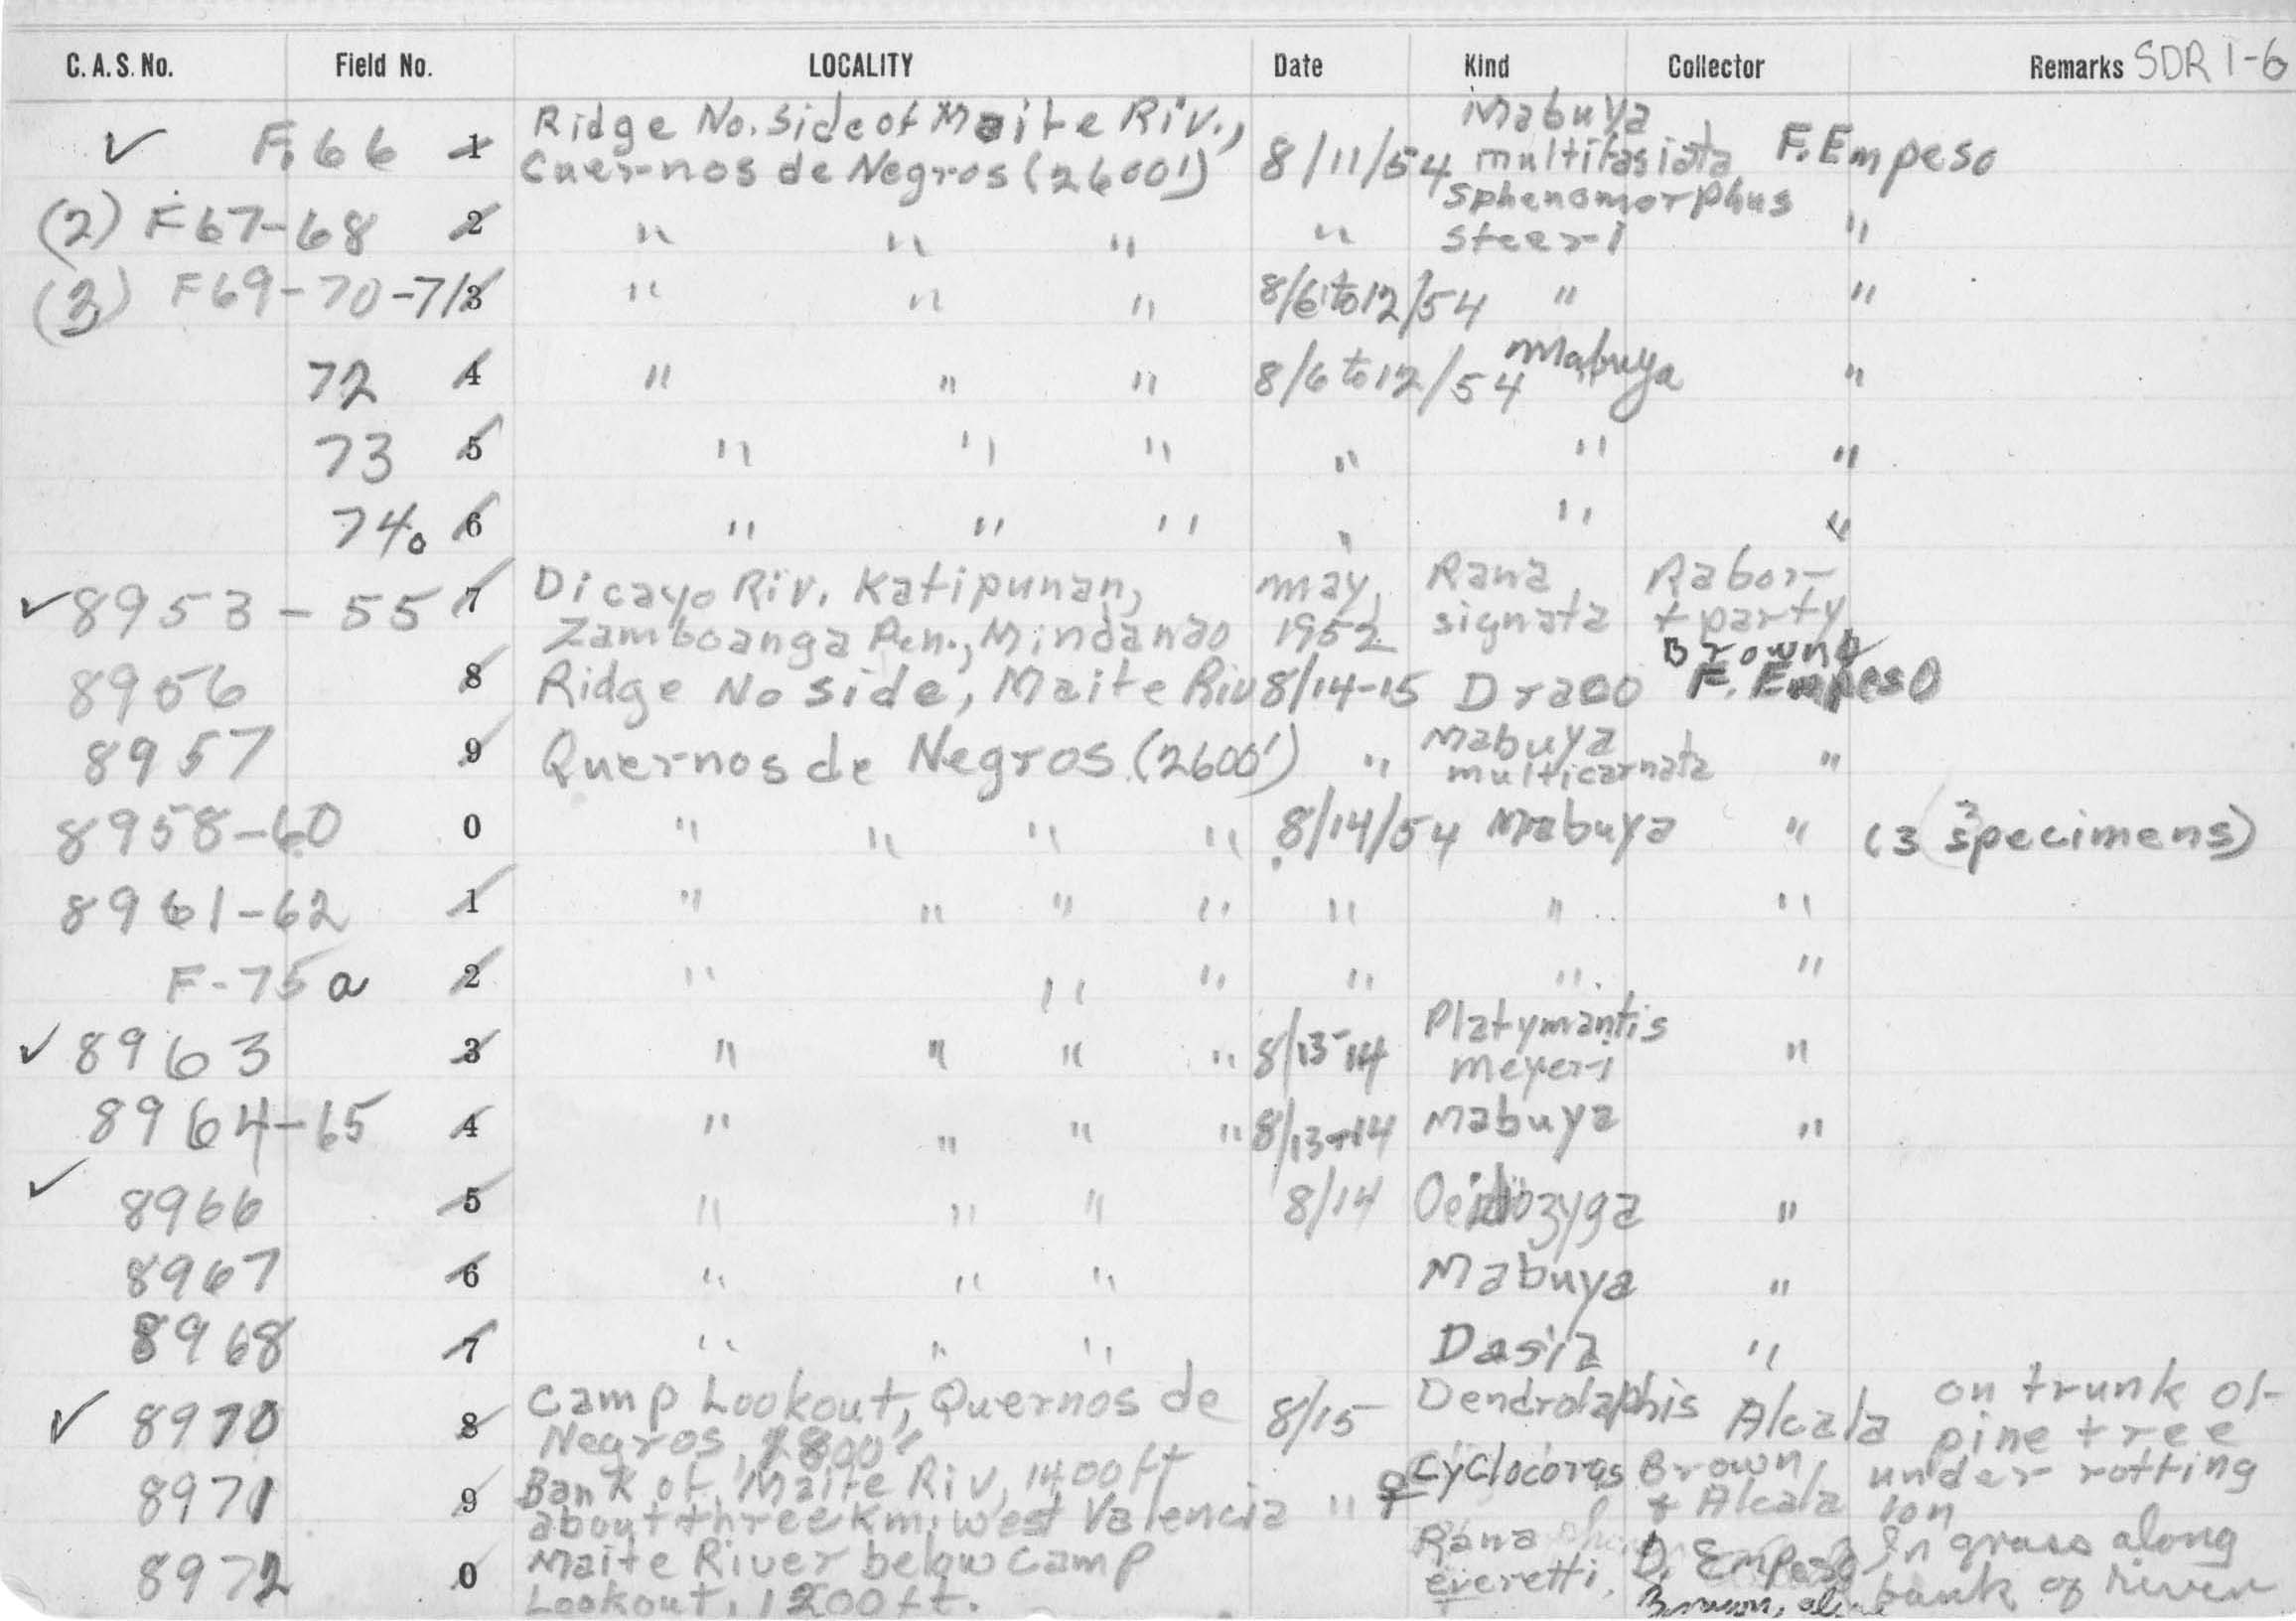 C.A.S. No. Field No. LOCALITY Date Kind Collector Remarks SDR 1-6
✓ F.66 1 Ridge No. side of Maite Riv., Cuernos de Negros (2600') 8/11/54 Mabuya multifasiata F. Empeso
(2) F67-68 2 " " " " Sphenomorphus steeri "
(3) F69-70-71 3 " " " 8/6 to 12/54 " "
72 4 " " " 8/6 to 12/54 Mabuya "
73 5 " " " " " "
74. 6 " " " " " "
✓ 8953-55 7 Dicayo Riv. Katipunan, Zamboanga Pen., Mindanao May, 1952 Rana signata Rabor + party
8956 8 Ridge No side, Maite Riv 8/14-15 Draco Brown & F. Empeso
8957 9 Quernos de Negros (2600') " Mabuya multicarnata "
8958-60 0 " " " " 8/14/54 Mabuya " (3 specimens)
8961-62 1 " " " " " " "
F-75a 2 " " " " " "
✓ 8963 3 " " " " 8/13-14 Platymantis meyeri "
8964-65 4 " " " " 8/13-14 Mabuya "
✓ 8966 5 " " " 8/14 "
8967 6 " " " Mabuya "
8968 7 " " " Dasia "
✓ 8970 8 Camp Lookout, Quernos de Negros, 8/15 Dendrolaphis Alcala on trunk of pine tree
8971 9 Bank of Maite Riv, 1400 ft about three km. west Valencia " ♀ Cyclocorus Brown & Alcala under rotting
8972 0 Maite River below Camp Lookout, 1200 ft. Rana everetti. D. Empeso In grass along bank of river